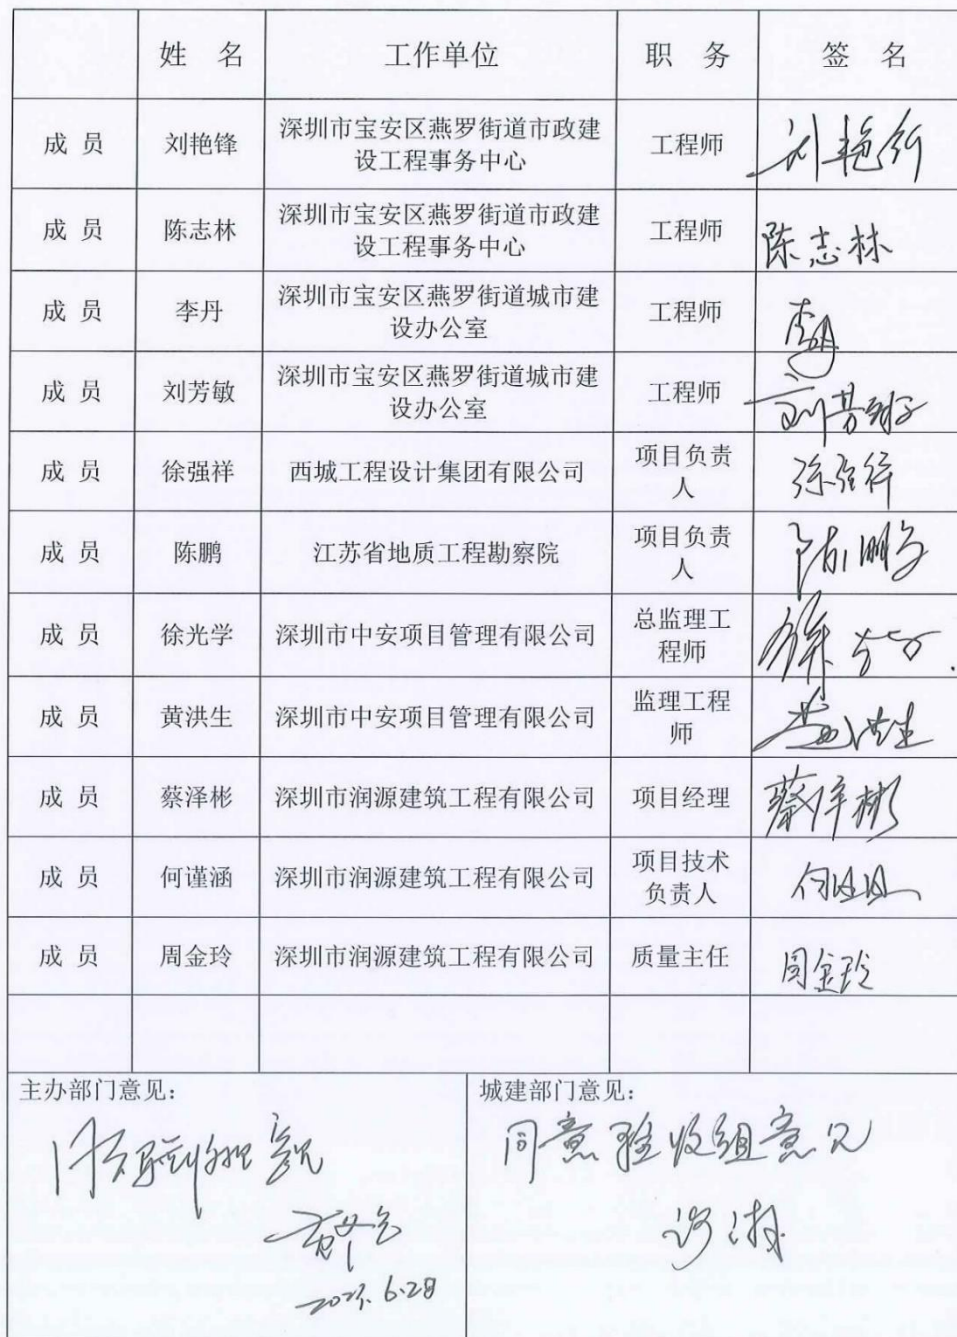 姓 名 工作单位 职 务 签 名
成 员 刘艳锋 深圳市宝安区燕罗街道市政建 工程师 刘艳锋
设工程事务中心
成 员 陈志林 深圳市宝安区燕罗街道市政建 工程师 陈志林
设工程事务中心
成 员 李丹 深圳市宝安区燕罗街道城市建 工程师 李丹
设办公室
成 员 刘芳敏 深圳市宝安区燕罗街道城市建 工程师 刘芳敏
设办公室
成 员 徐强祥 西城工程设计集团有限公司 项目负责 徐强祥
人
成 员 陈鹏 江苏省地质工程勘察院 项目负责 陈鹏
人
成 员 徐光学 深圳市中安项目管理有限公司 总监理工 徐光学
程师
成 员 黄洪生 深圳市中安项目管理有限公司 监理工程 黄洪生
师
成 员 蔡泽彬 深圳市润源建筑工程有限公司 项目经理 蔡泽彬
成 员 何谨涵 深圳市润源建筑工程有限公司 项目技术
负责人
成 员 周金玲 深圳市润源建筑工程有限公司 质量主任 周金玲
主办部门意见：
同意验收组意见
城建部门意见：
同意验收组意见